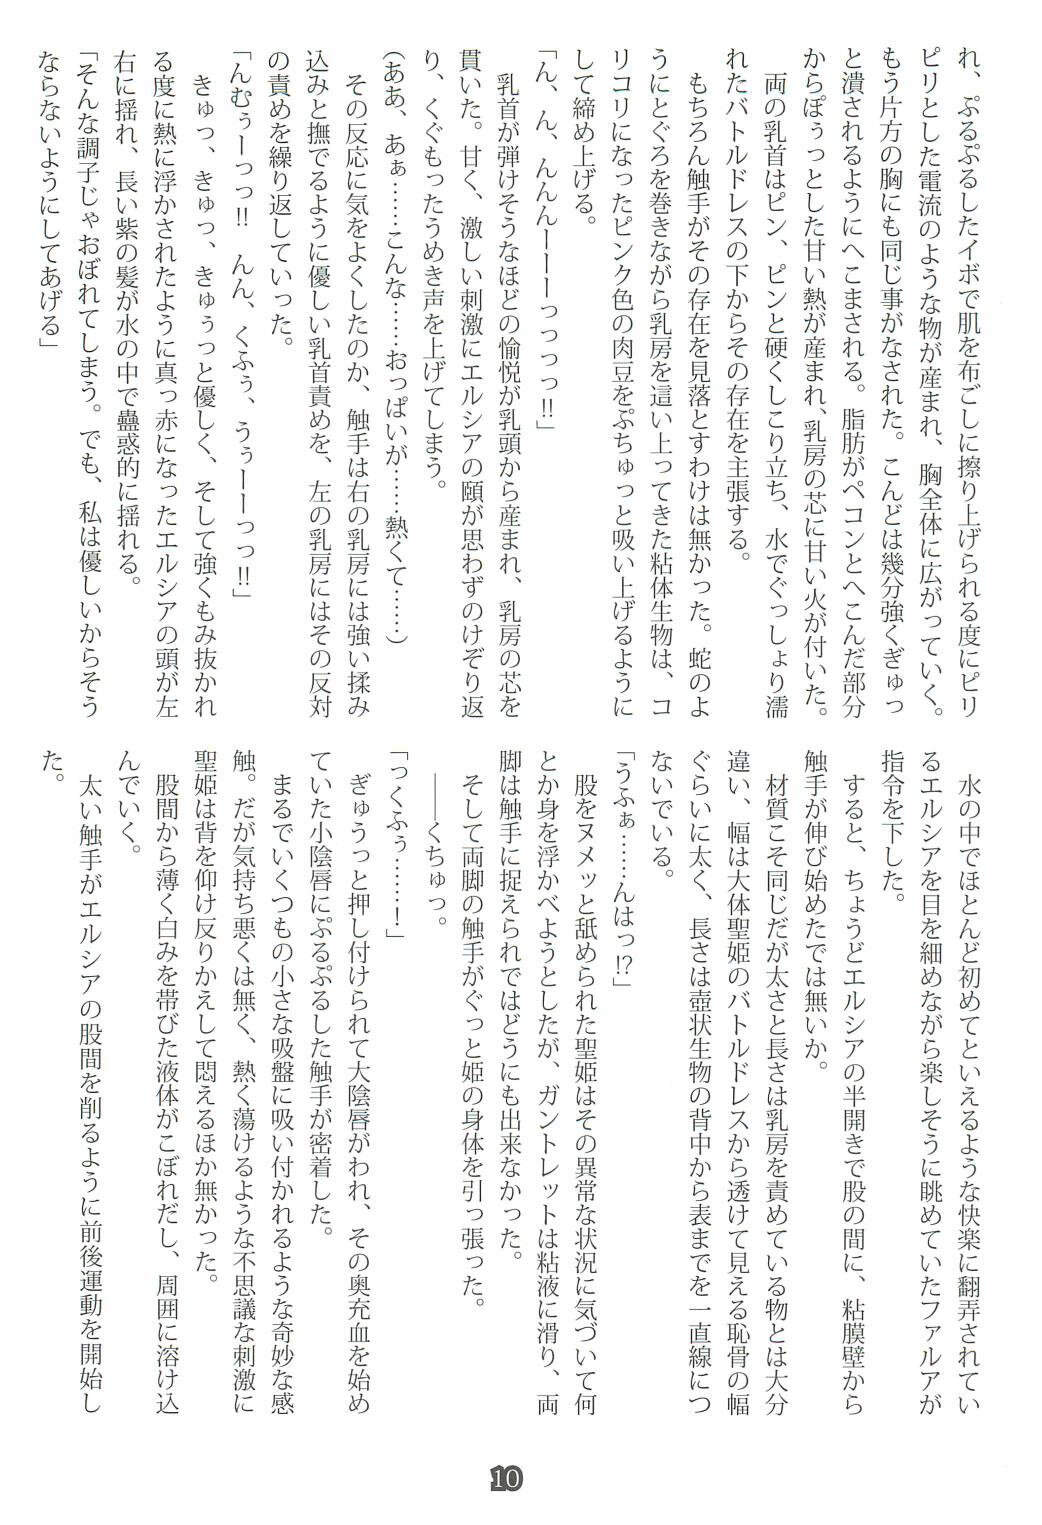 れ、ぷるぷるしたイボで肌を布ごしに擦り上げられる度にピリ
ピリとした電流のような物が産まれ、胸全体に広がっていく。
もう片方の胸にも同じ事がなされた。こんどは幾分強くぎゅっ
と潰されるようにへこまされる。脂肪がペコンとへこんだ部分
からぽぅっとした甘い熱が産まれ、乳房の芯に甘い火が付いた。
両の乳首はピン、ピンと硬くしこり立ち、水でぐっしょり濡
れたバトルドレスの下からその存在を主張する。
もちろん触手がその存在を見落とすわけは無かった。蛇のよ
うにとぐろを巻きながら乳房を這い上ってきた粘体生物は、コ
リコリになったピンク色の肉豆をぷちゅっと吸い上げるように
して締め上げる。
「ん、ん、んんんーーーっっっっ!!」
乳首が弾けそうなほどの愉悦が乳頭から産まれ、乳房の芯を
貫いた。甘く、激しい刺激にエルシアの頤が思わずのけぞり返
り、くぐもったうめき声を上げてしまう。
(ああ、あぁ……こんな……おっぱいが……熱くて……)
その反応に気をよくしたのか、触手は右の乳房には強い揉み
込みと撫でるように優しい乳首責めを、左の乳房にはその反対
の責めを繰り返していった。
「んむぅーっっ!! んん、くふぅ、うぅーーっっ!!」
きゅっ、きゅっ、きゅぅっと優しく、そして強くもみ抜かれ
る度に熱に浮かされたように真っ赤になったエルシアの頭が左
右に揺れ、長い紫の髪が水の中で蠱惑的に揺れる。
「そんな調子じゃおぼれてしまう。でも、私は優しいからそう
ならないようにしてあげる」
水の中でほとんど初めてといえるような快楽に翻弄されてい
るエルシアを目を細めながら楽しそうに眺めていたファルアが
指令を下した。
すると、ちょうどエルシアの半開きで股の間に、粘膜壁から
触手が伸び始めたでは無いか。
材質こそ同じだが太さと長さは乳房を責めている物とは大分
違い、幅は大体聖姫のバトルドレスから透けて見える恥骨の幅
ぐらいに太く、長さは壺状生物の背中から表までを一直線につ
ないでいる。
「うふぁ……んはっ!?」
股をヌメッと舐められた聖姫はその異常な状況に気づいて何
とか身を浮かべようとしたが、ガントレットは粘液に滑り、両
脚は触手に捉えられてはどうにも出来なかった。
そして両脚の触手がぐっと姫の身体を引っ張った。
――くちゅっ。
「っくふぅ……!」
ぎゅうっと押し付けられて大陰唇がわれ、その奥充血を始め
ていた小陰唇にぷるぷるした触手が密着した。
まるでいくつもの小さな吸盤に吸い付かれるような奇妙な感
触。だが気持ち悪くは無く、熱く蕩けるような不思議な刺激に
聖姫は背を仰け反りかえして悶えるほか無かった。
股間から薄く白みを帯びた液体がこぼれだし、周囲に溶け込
んでいく。
太い触手がエルシアの股間を削るように前後運動を開始し
た。
10